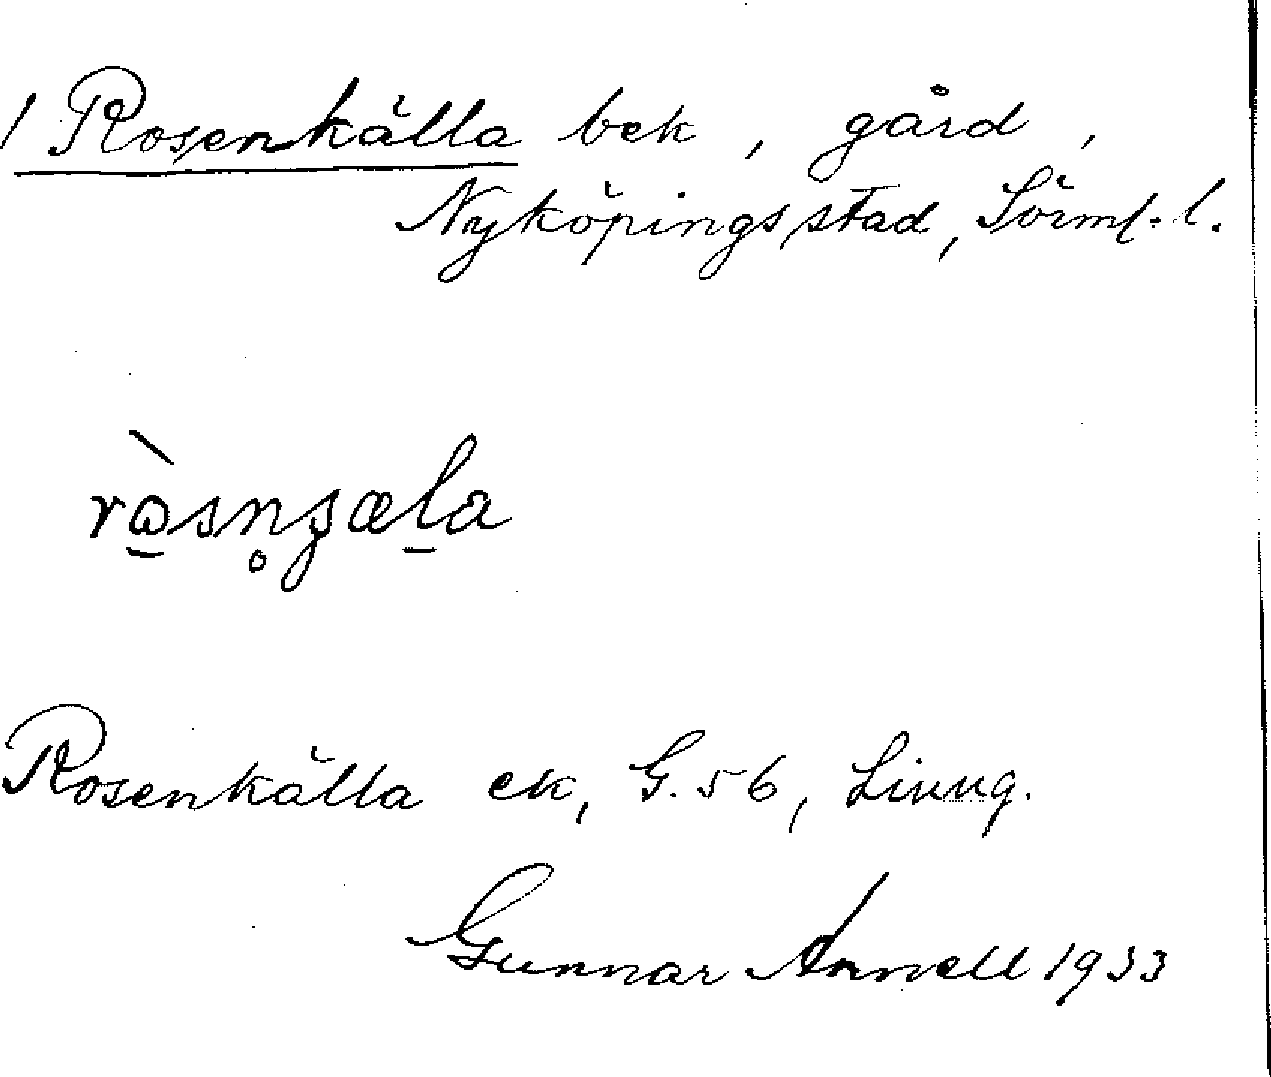 1 Rosenkälla bek, gård,
Nyköpings stad, Sörml. l.
rò̱sn̥ʒæḻa
Rosenkälla ek, G. 56,
Gunnar Annell 1933